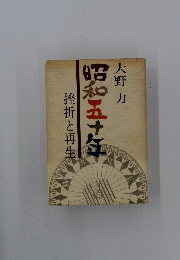 大野力
昭和五十年
挫折と再生